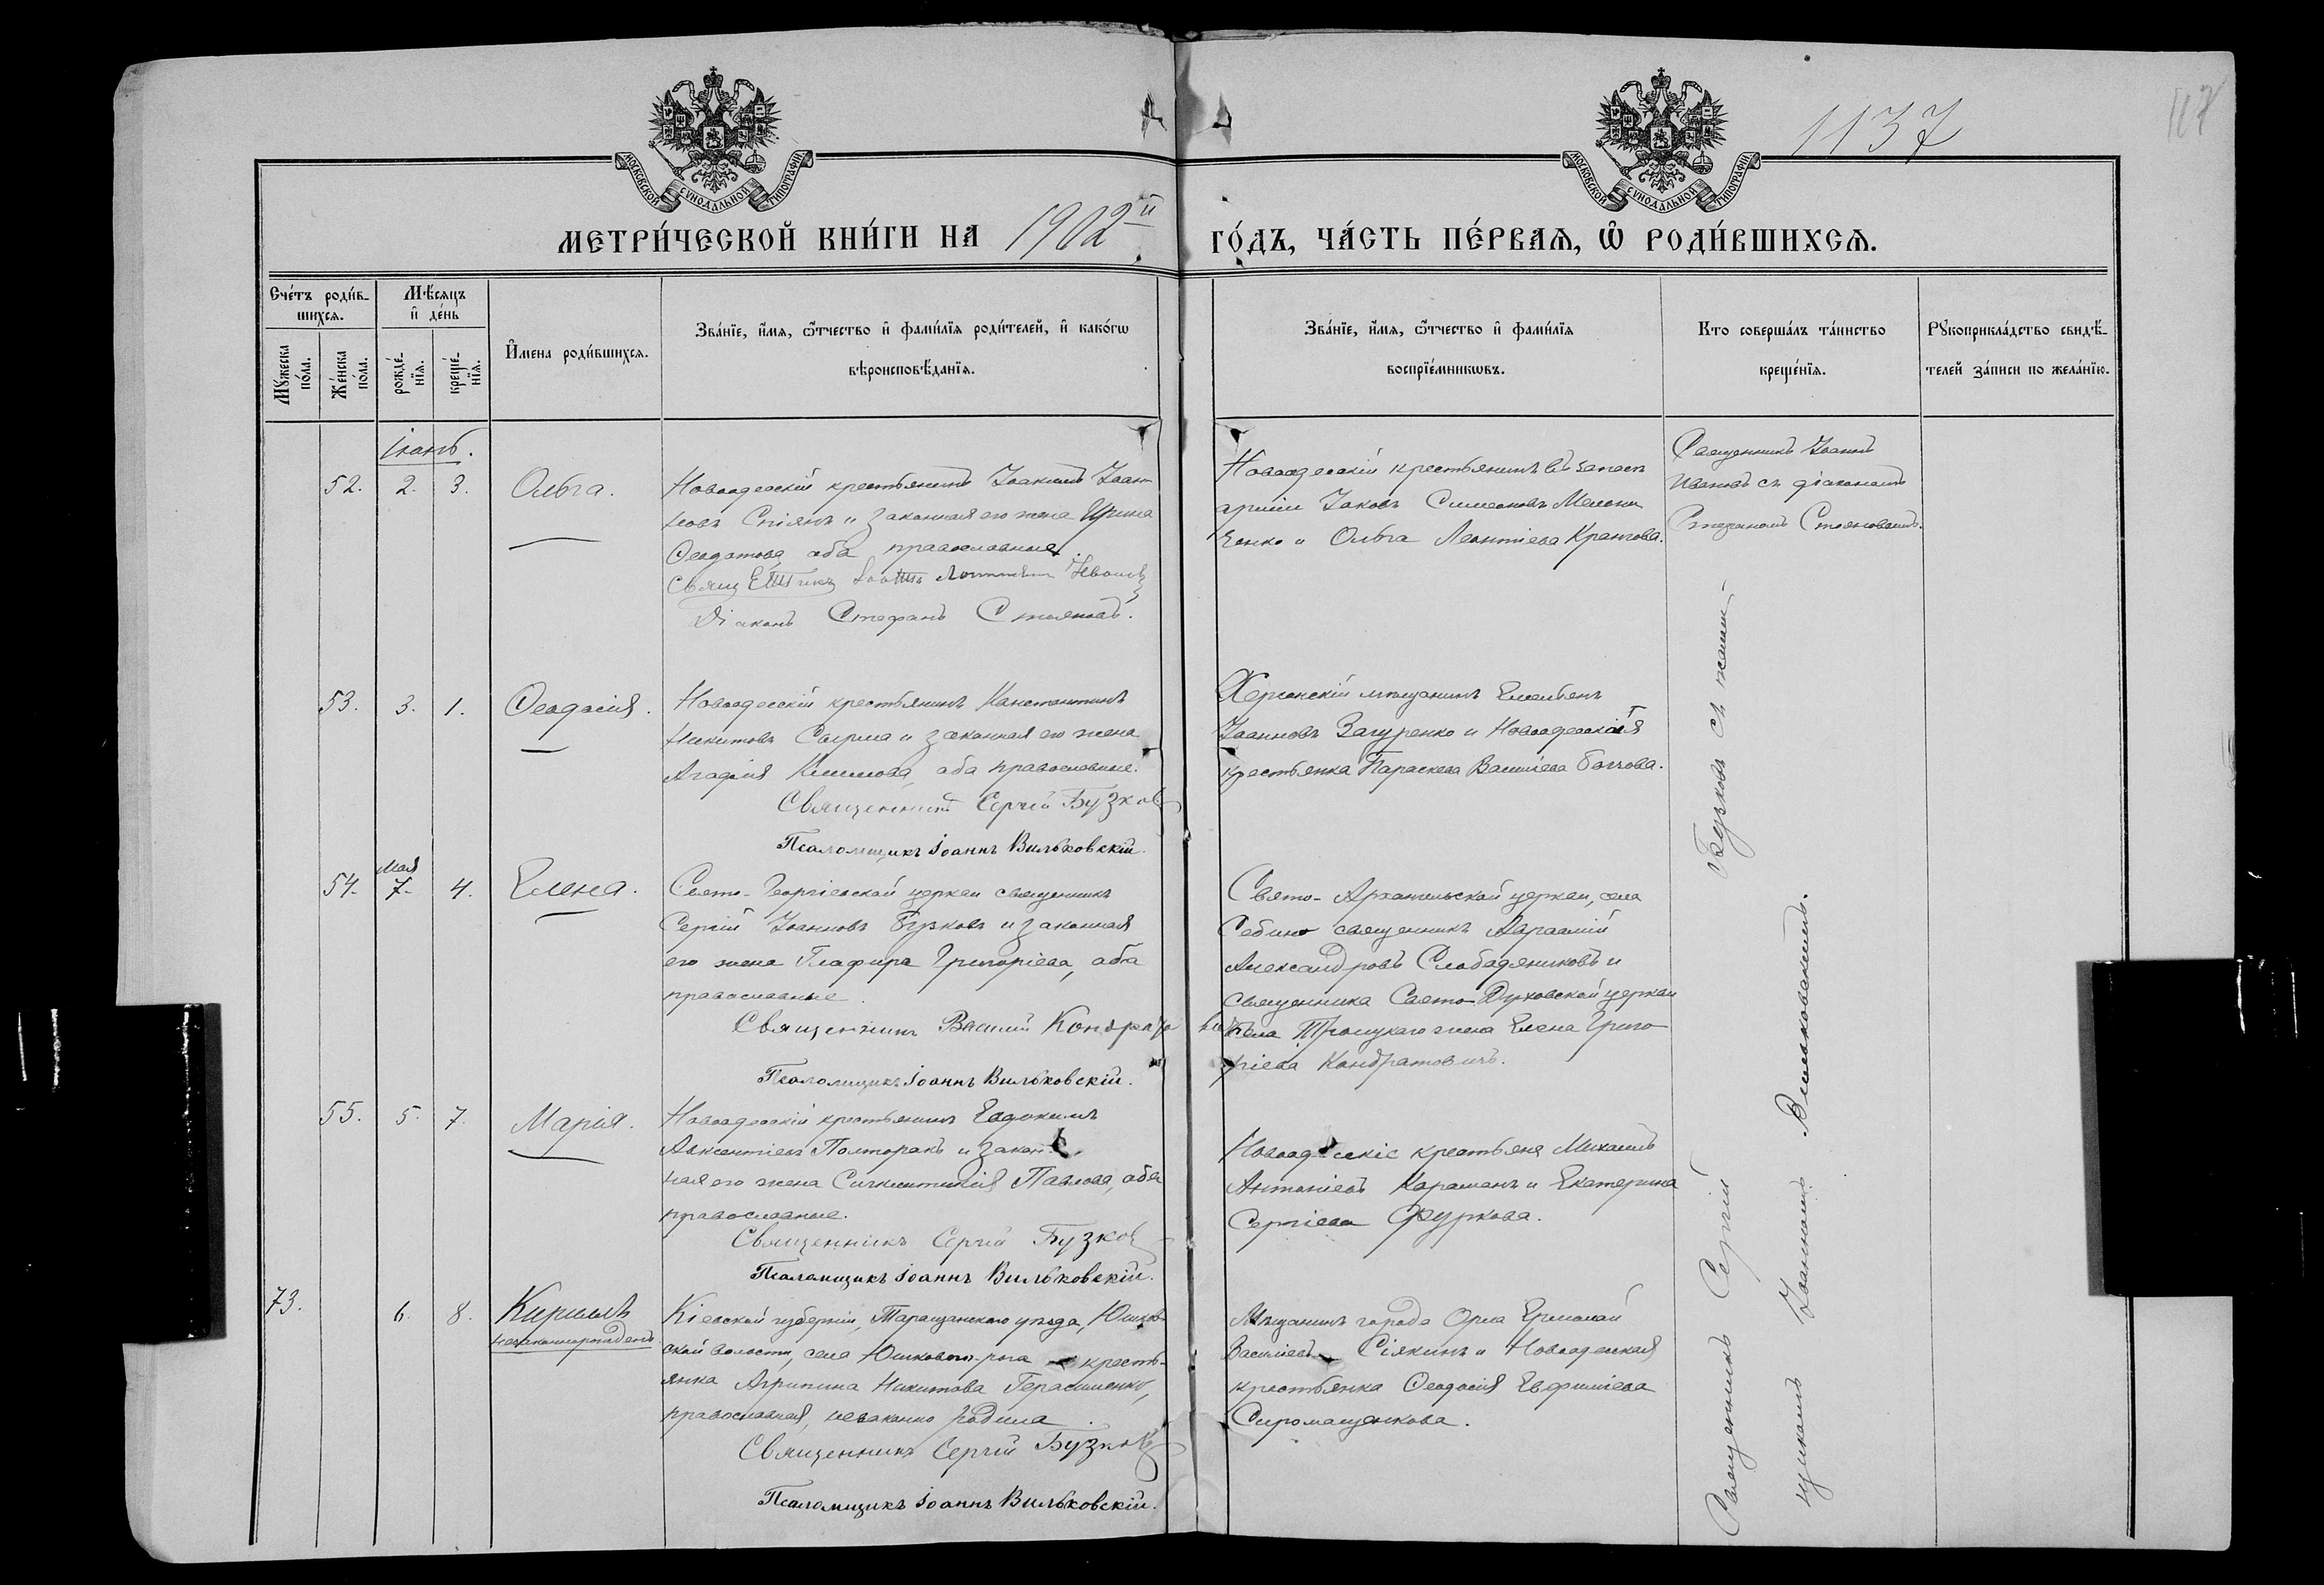 1137
117
МОСКОВСКОЙ СѴНОДАЛЬНОЙ ТИПОГРАФІИ
МОСКОВСКОЙ СѴНОДАЛЬНОЙ ТИПОГРАФІИ
МЕТРИ́ЧЕСКОЙ КНИ́ГИ НА 1902й ГО́ДЪ, ЧА́СТЬ ПЕ́РВАЯ, Ѿ РОДИ́ВШИХСЯ.
Сче́тъ роди́в-
шихся.
Мѣ́сяцъ
и҆ де́нь
Мꙋ́жеска
по́ла.
Же́нска
по́ла.
рожде́-
нїя.
креще́-
нїя.
И҆мена роди́вшихся.
Зва́нїе, и҆́мя, ѻ҆́тчество и҆ фами́лїя роди́телей, и҆ како́гѡ
вѣроисповѣ́данїя.
Зва́нїе, и҆́мя, ѻ҆́тчество и҆ фами́лїя
воспрїе́мникѡвъ.
Кто соверша́лъ та́инство
креще́нїя.
Рꙋкоприкла́дство свидѣ́-
телей за́писи по жела́нїю.
Іюнь.
52. 2. 3. Ольга.
Новоодесскій крестьянинъ Іоакимъ Іоан
новъ Стіянъ и законная его жена Ирина
Ѳеодотова, оба православные.
Іоаннъ Ивановъ
Діаконъ Стефанъ Стояновъ.
Новоодесскій крестьянинъ въ запасѣ
арміи Іаковъ Симеоновъ
и Ольга Леонтіева
Священникъ Іоаннъ
Ивановъ съ діакономъ
Стефаномъ Стояновымъ.
53. 3. 1. Ѳеодосія.
Новоодесскій крестьянинъ Константинъ
Никитовъ и законная его жена
Агафія оба православные.
Священникъ Сергій Бузковъ
Псаломщикъ Іоаннъ Вильковскій.
Херсонскій мѣщанинъ Емельянъ
Іоанновъ Загуренко и Новоодесская
крестьянка Параскева Василіева
54. Мая 7. 4. Елена.
Свято-Георгіевской церкви священникъ
Сергій Іоанновъ Бузковъ и законная
его жена Глафира Григоріева, оба
православные.
Священникъ Василій Кондратовичъ
Псаломщикъ Іоаннъ Вильковскій.
Свято-Архангельской церкви, села
Себино священникъ Авраамій
Александровъ Слободяниковъ и
священника Свято-Духовской церкви
села Троицкаго жена Елена Григо-
ріева Кондратовичъ.
55. 5. 7. Марія.
Новоодесскій крестьянинъ Евдокимъ
Авксентіевъ Полторакъ и закон-
ная его жена Синклитикія Павлова, оба
православные.
Священникъ Сергій Бузковъ
Псаломщикъ Іоаннъ Вильковскій.
Новоодесскіе крестьяне Михаилъ
Антоніевъ Карашанъ и Екатерина
Сергіева Фуркова.
73. 6. 8. Кириллъ
незаконнорожденъ.
Кіевской губерніи, Таращанскаго уѣзда, Юшков-
ской волости, села Юшкового-рога кресть-
янка Агрипина Никитова Герасименко,
православная, незаконно родила.
Священникъ Сергій Бузковъ
Псаломщикъ Іоаннъ Вильковскій.
Мѣщанинъ города Орла Ермолай
Василіевъ Сіякинъ и Новоодесская
крестьянка Ѳеодосія Евфиміева
Сиромащенкова.
Священникъ Сергій Бузковъ съ псалом-
щикомъ Іоанномъ Вильковскимъ.